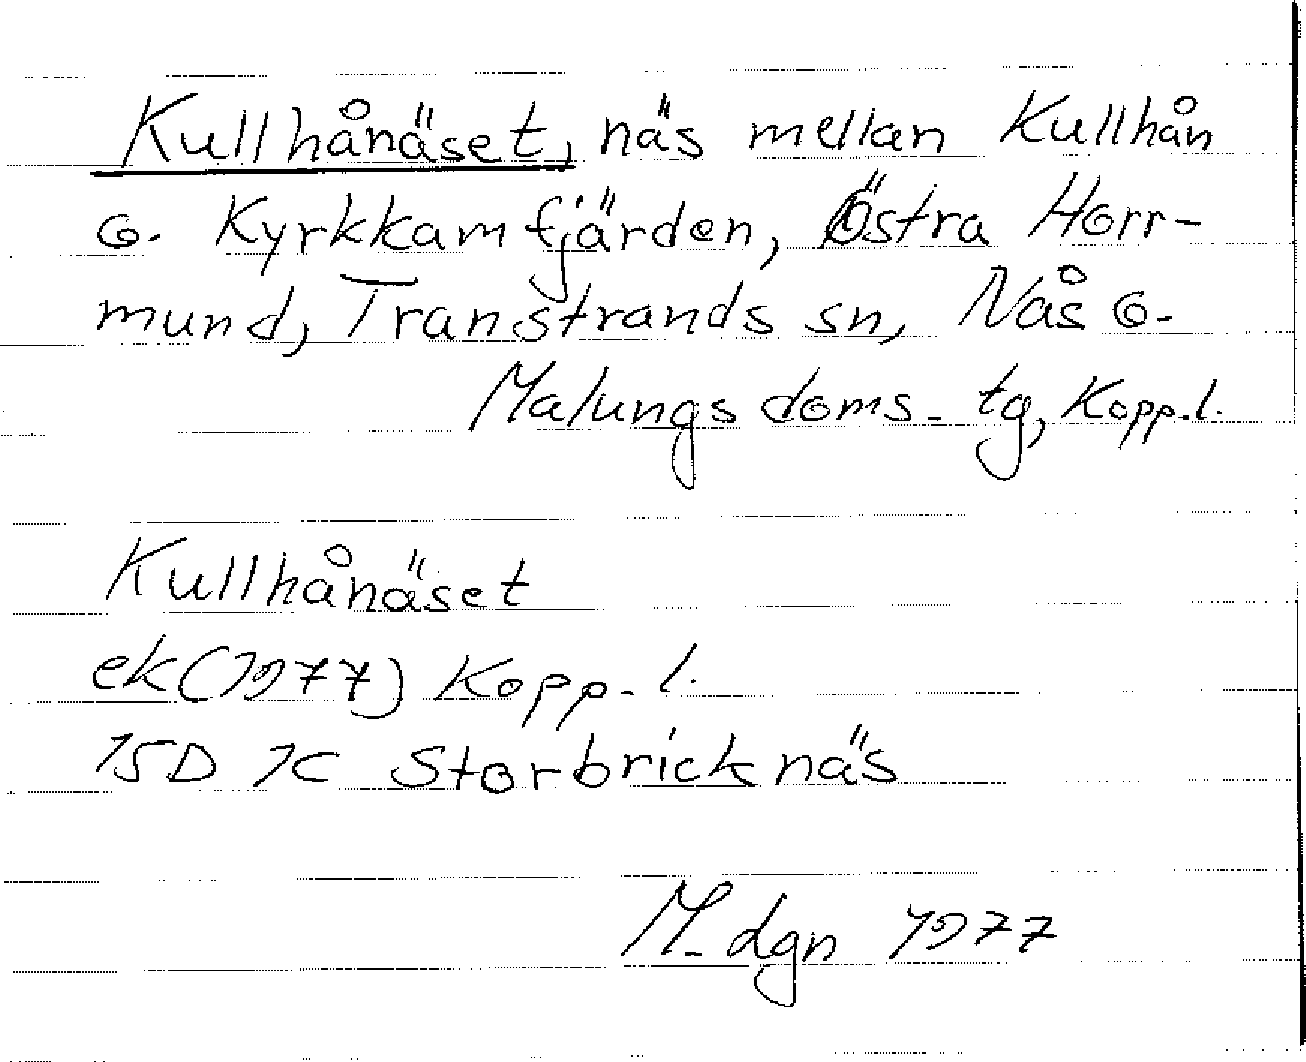 Kullhånäset, näs mellan Kullhån
o. Kyrkkamfjärden, Östra Horr-
mund, Transtrands sn, Nås o.
Malungs doms. tg, Kopp.l.
Kullhånäset
ek(1977) Kopp. l.
15D 1C Storbricknäs
M. dgn 1977